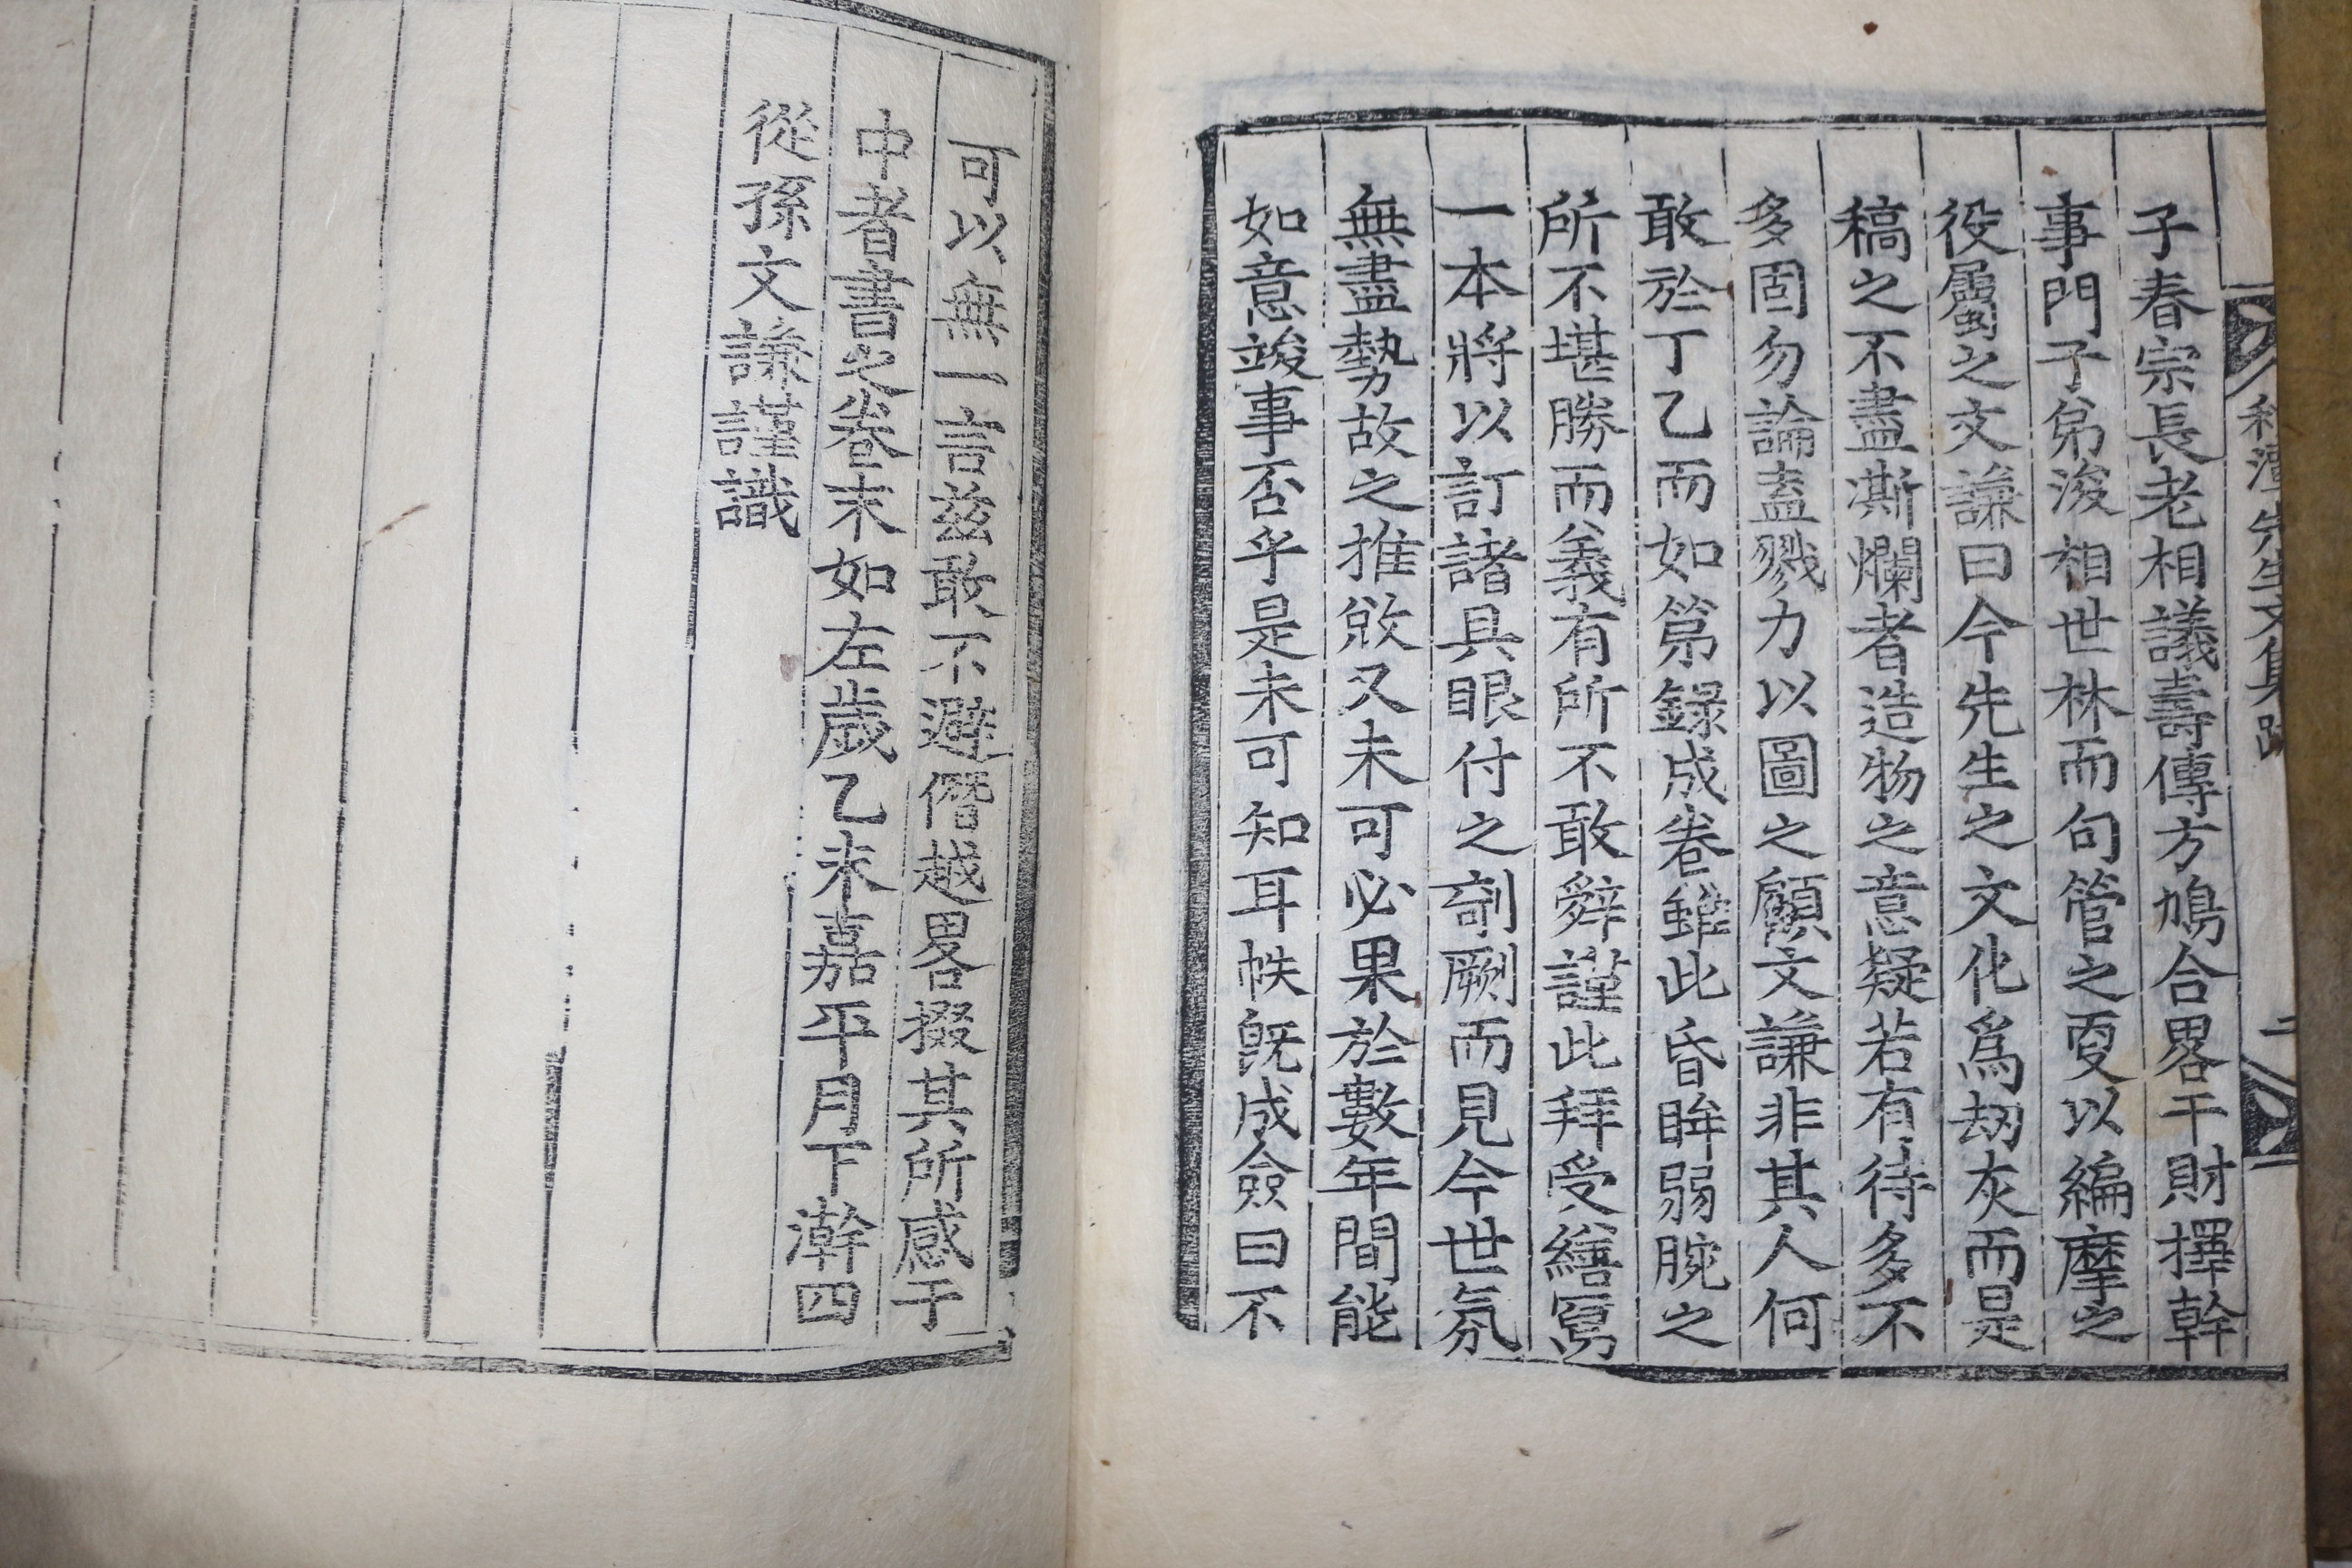 子春宗長老相議壽傳方鳩合畧干財擇幹
事門子弟浚相世林而句管之叓以編摩之
役屬之文謙曰今先生之文化爲刼灰而是
稿之不盡澌爛者造物之意疑若有待多不
多固勿論盍戮力以圖之顧文謙非其人何
敢於丁乙而如第錄成卷雖此昏眸弱腕之
所不堪勝而義有所不敢辭謹此拜受繕寫
一本將以訂諸具眼付之剞劂而見今世氛
無盡勢故之推敓又未可必果於數年間能
如意竣事否乎是未可知耳帙旣成僉曰不
可以無一言玆敢不避僭越畧掇其所感于
中者書之卷末如左歲乙未嘉平月下澣四
從孫文謙謹識
先生文集跋
二